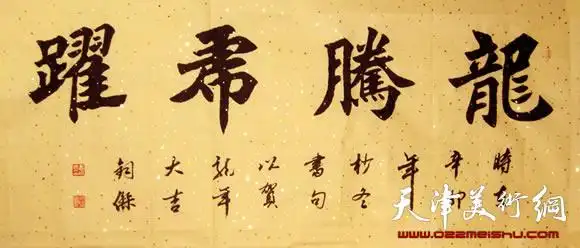 龍騰虎躍
時在
辛卯
年
杪冬
書句
以賀
龍年
大吉
天津美術網
www.022meishu.com